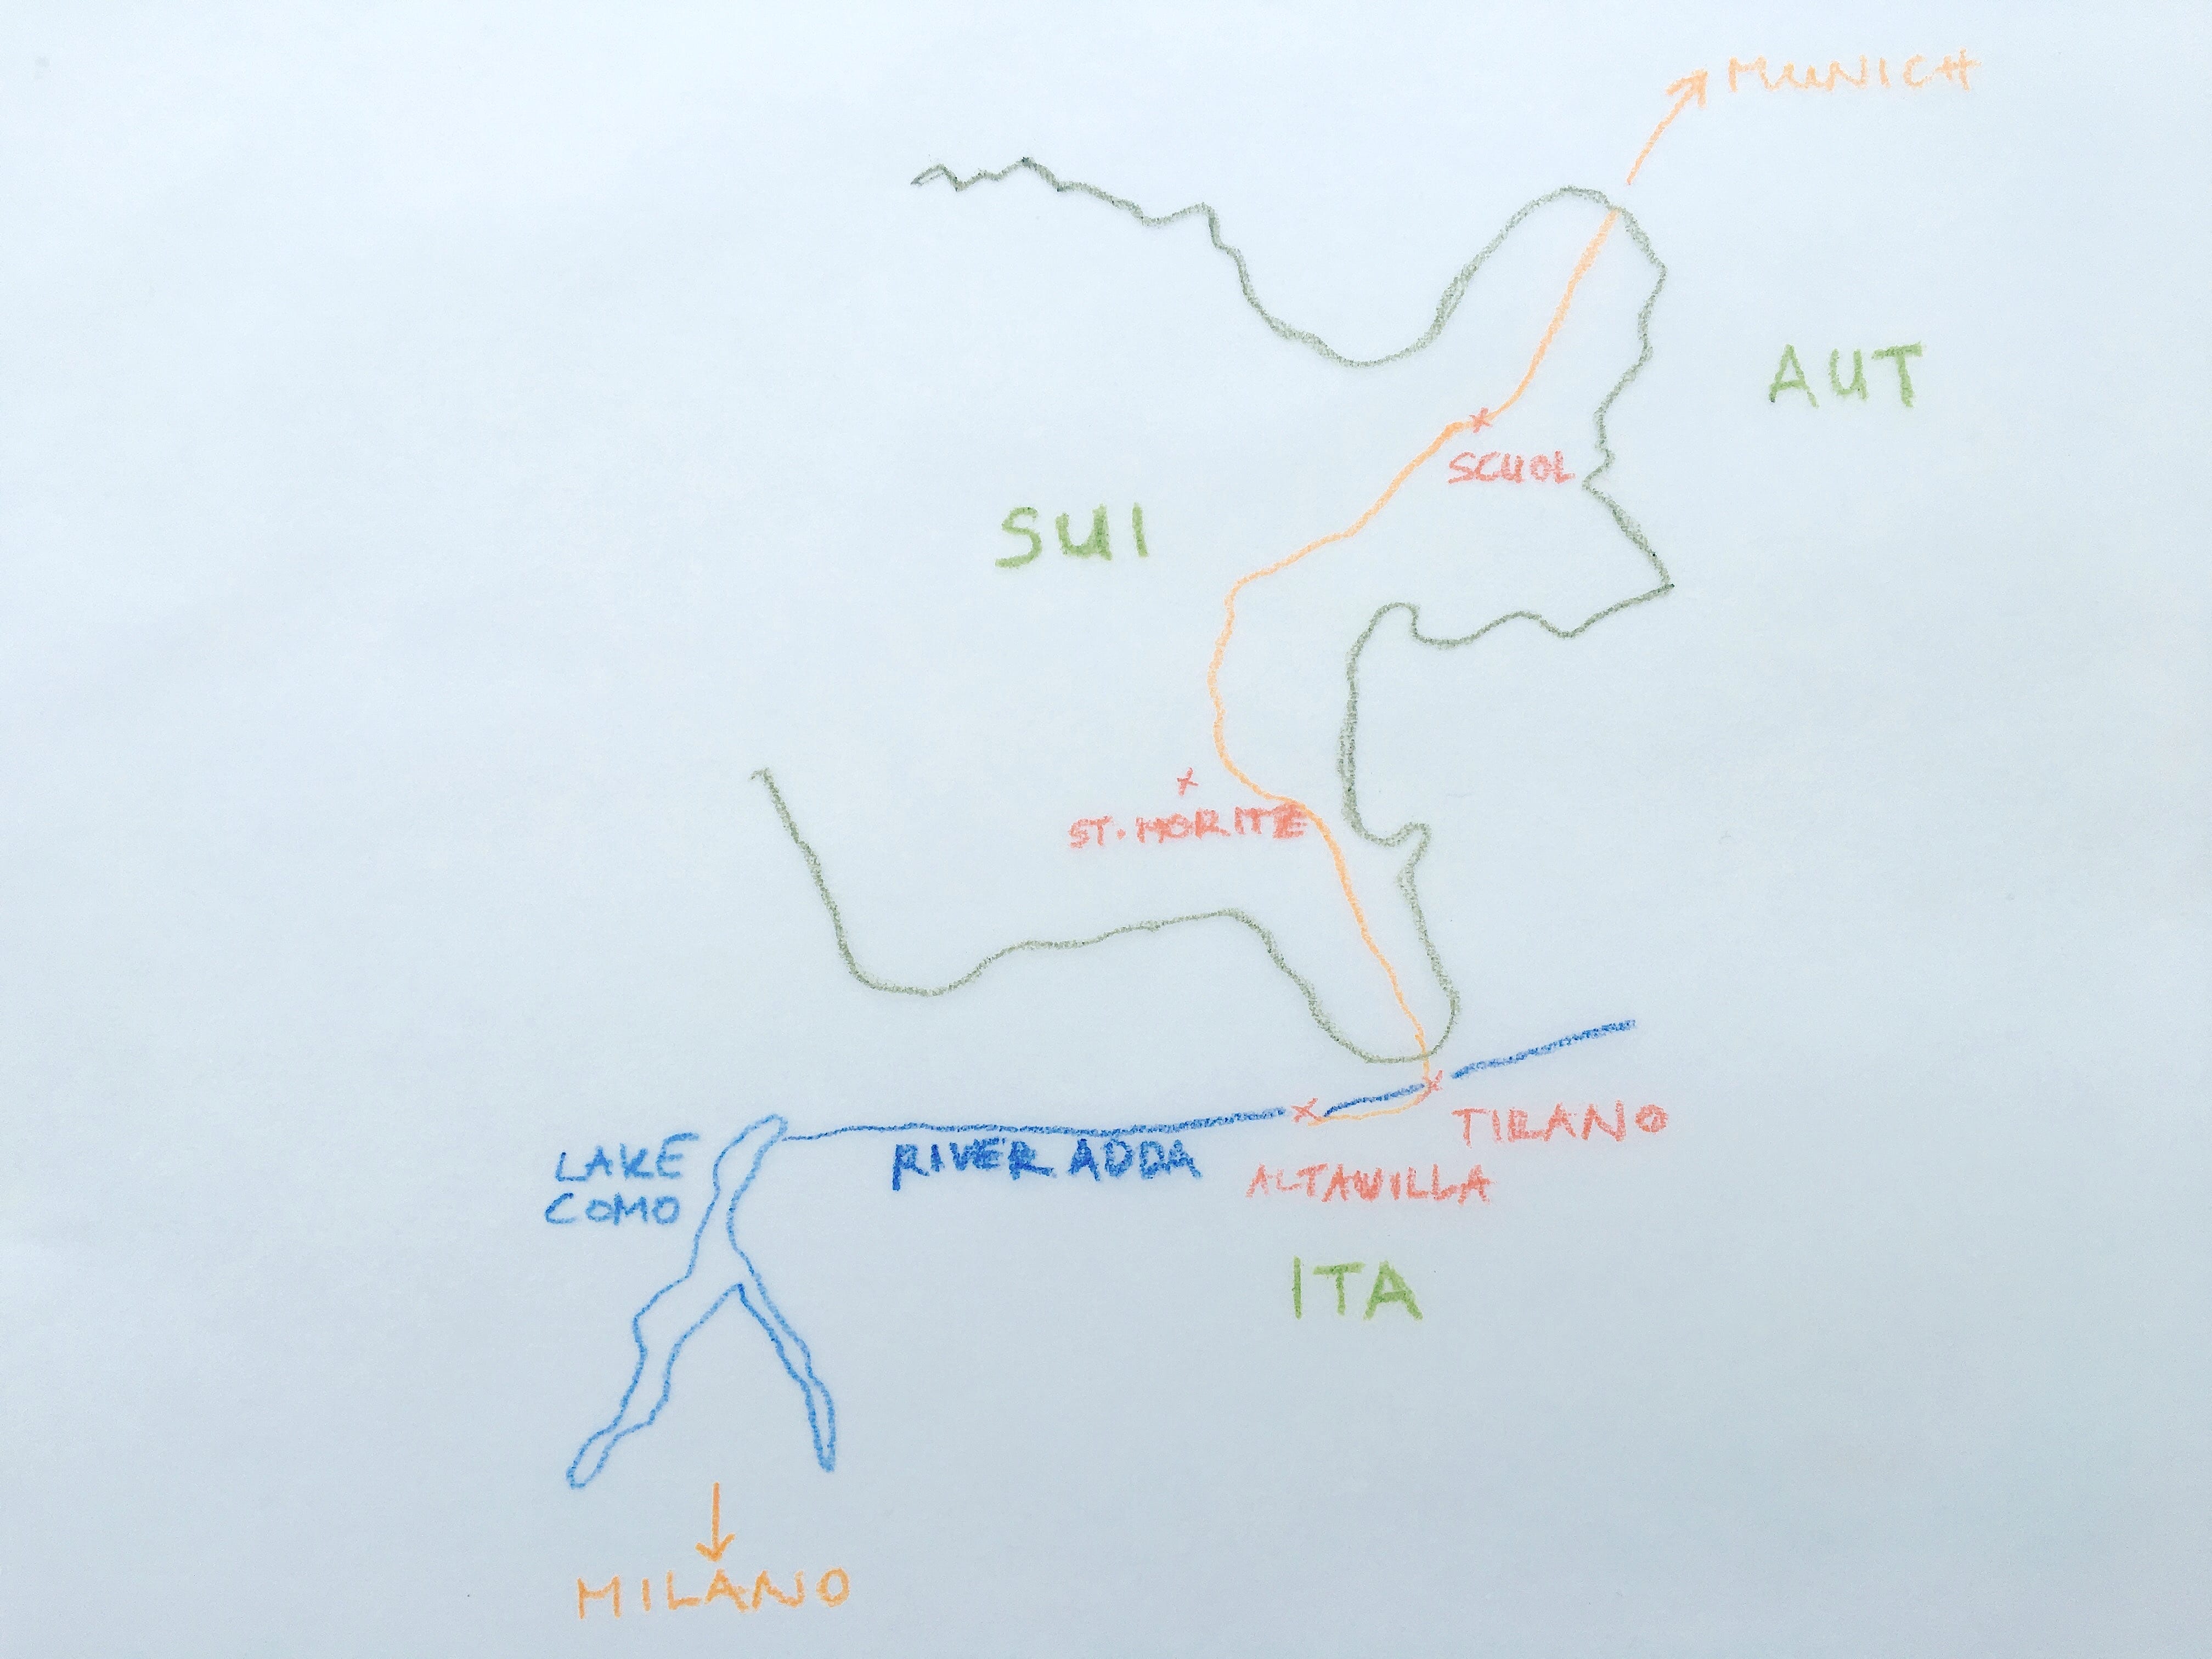 MUNICH
AUT
SCUOL
SUI
ST. MORITZ
TIRANO
LAKE
COMO
RIVER ADDA
ALTAVILLA
ITA
MILANO